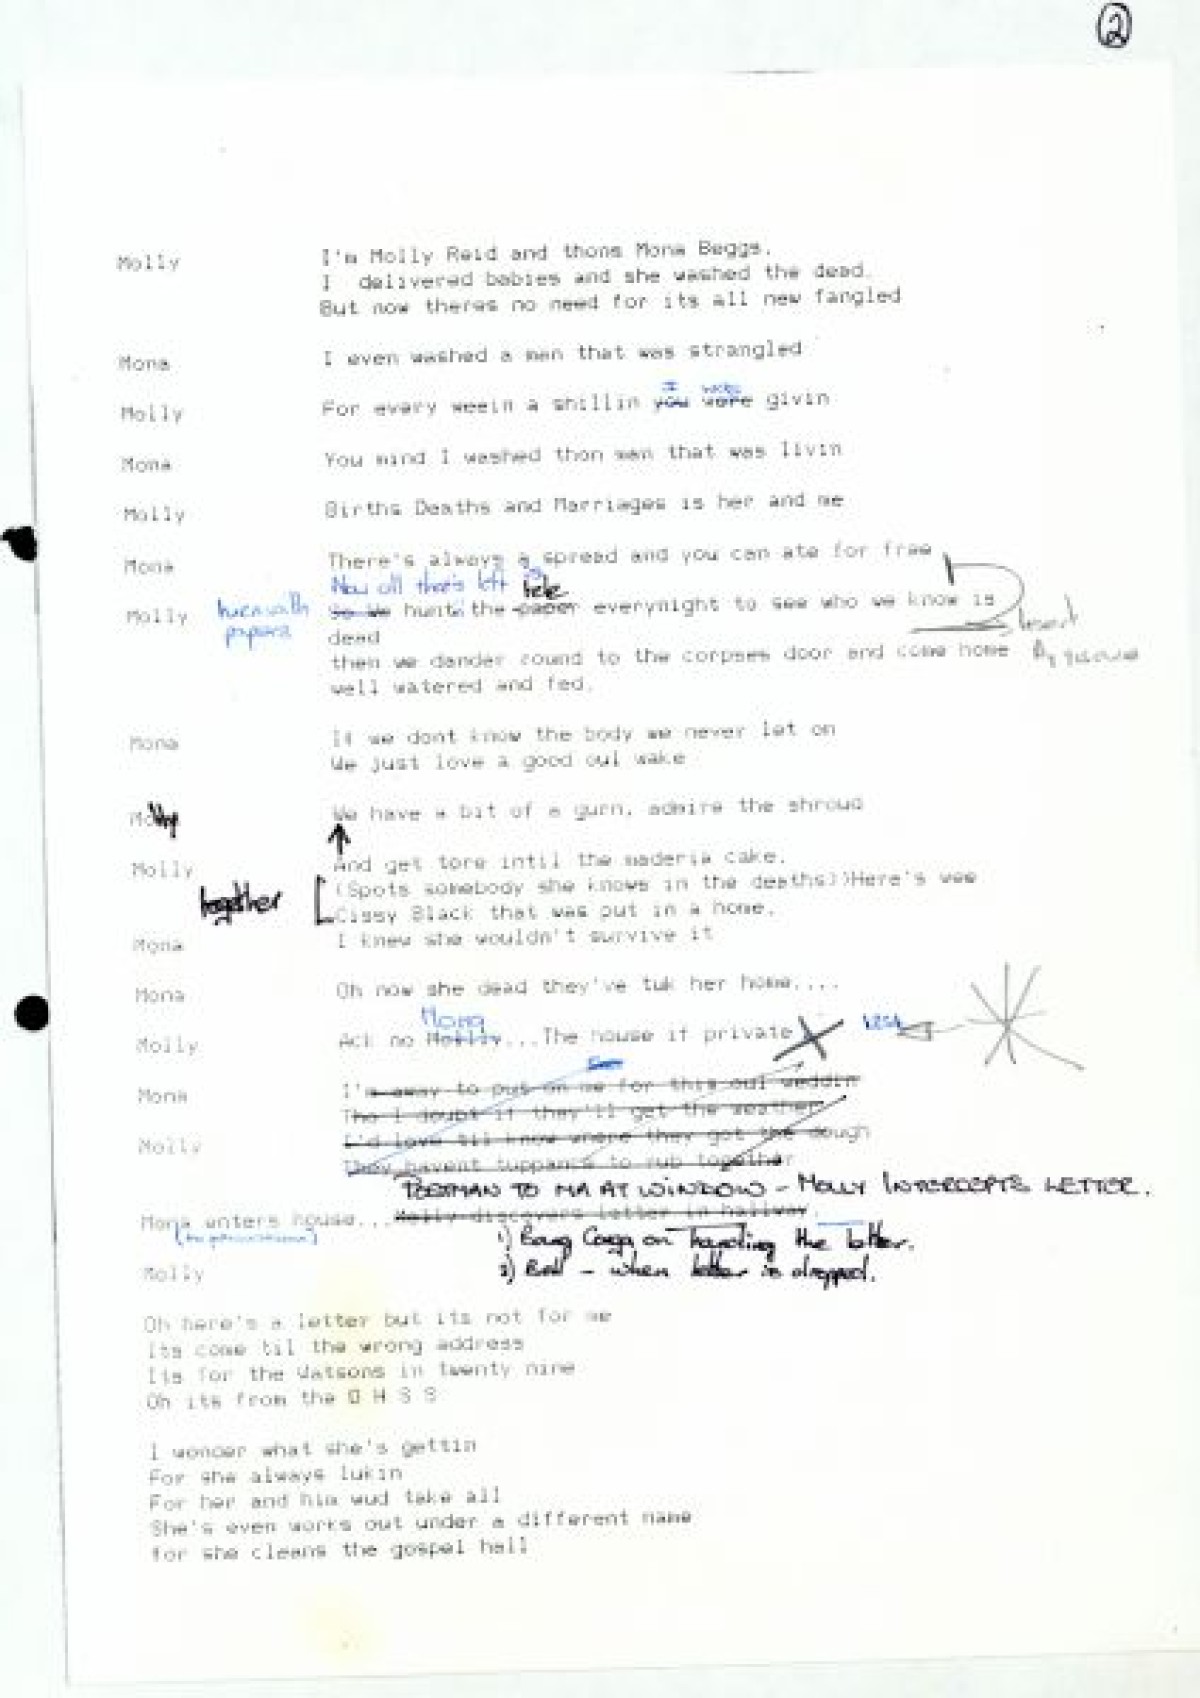 2
Molly I'm Molly Reid and thons Mona Beggs.
I delivered babies and she washed the dead.
But now theres no need for its all new fangled
Mona I even washed a man that was strangled
I was
Molly For every weein a shillin you were givin
Mona You mind I washed thon man that was livin
Molly Births Deaths and Marriages is her and me
Mona There's always a spread and you can ate for free
Now all thats left is tele
Molly So we hunt the paper everynight to see who we know is
papers
dead
then we dander round to the corpses door and come home
well watered and fed.
Mona If we dont know the body we never let on
We just love a good oul wake
Molly We have a bit of a gurn, admire the shroud
Molly And get tore intil the maderia cake.
(Spots somebody she knows in the deaths))Here's wee
together
Cissy Black that was put in a home.
Mona I knew she wouldn't survive it
Mona Oh now she dead they've tuk her home....
Mona
Molly Ack no Molly...The house if private
Mona I'm away to put on me for this oul weddin
Tho I doubt if they'll get the weather
Molly I'd love til know where they got the dough
They havent tuppance to rub together
POSTMAN TO MA AT WINDOW - MOLLY INTERCEPTS LETTER.
Mona enters house... Molly discovers letter in hallway.
1) Bang Conga on handling the letter.
2) Bell - when letter is dropped.
Molly
Oh here's a letter but its not for me
Its come til the wrong address
Its for the Watsons in twenty nine
Oh its from the D H S S
I wonder what she's gettin
For she always lukin
For her and him wud take all
She's even works out under a different name
for she cleans the gospel hall